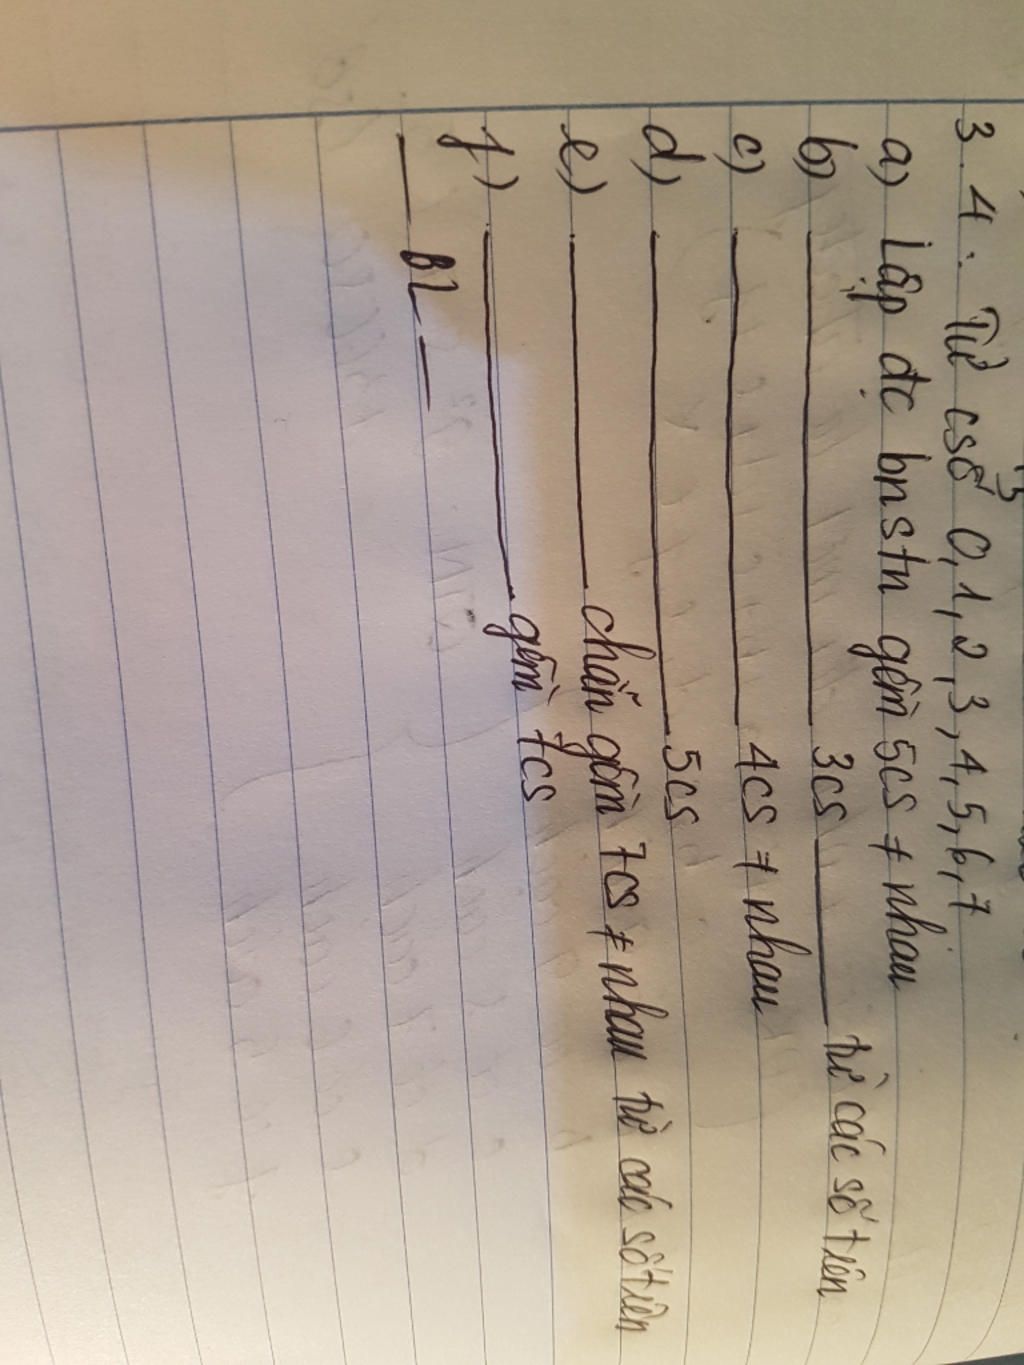 3.4. Từ csố 0, 1, 2, 3, 4, 5, 6, 7
a) Lập đc bnstn gồm 5cs ≠ nhau
b) 3cs từ các số trên
c) 4cs ≠ nhau
d) 5cs
e) chẵn gồm 7cs ≠ nhau từ các số trên
f) gồm 7cs
BL